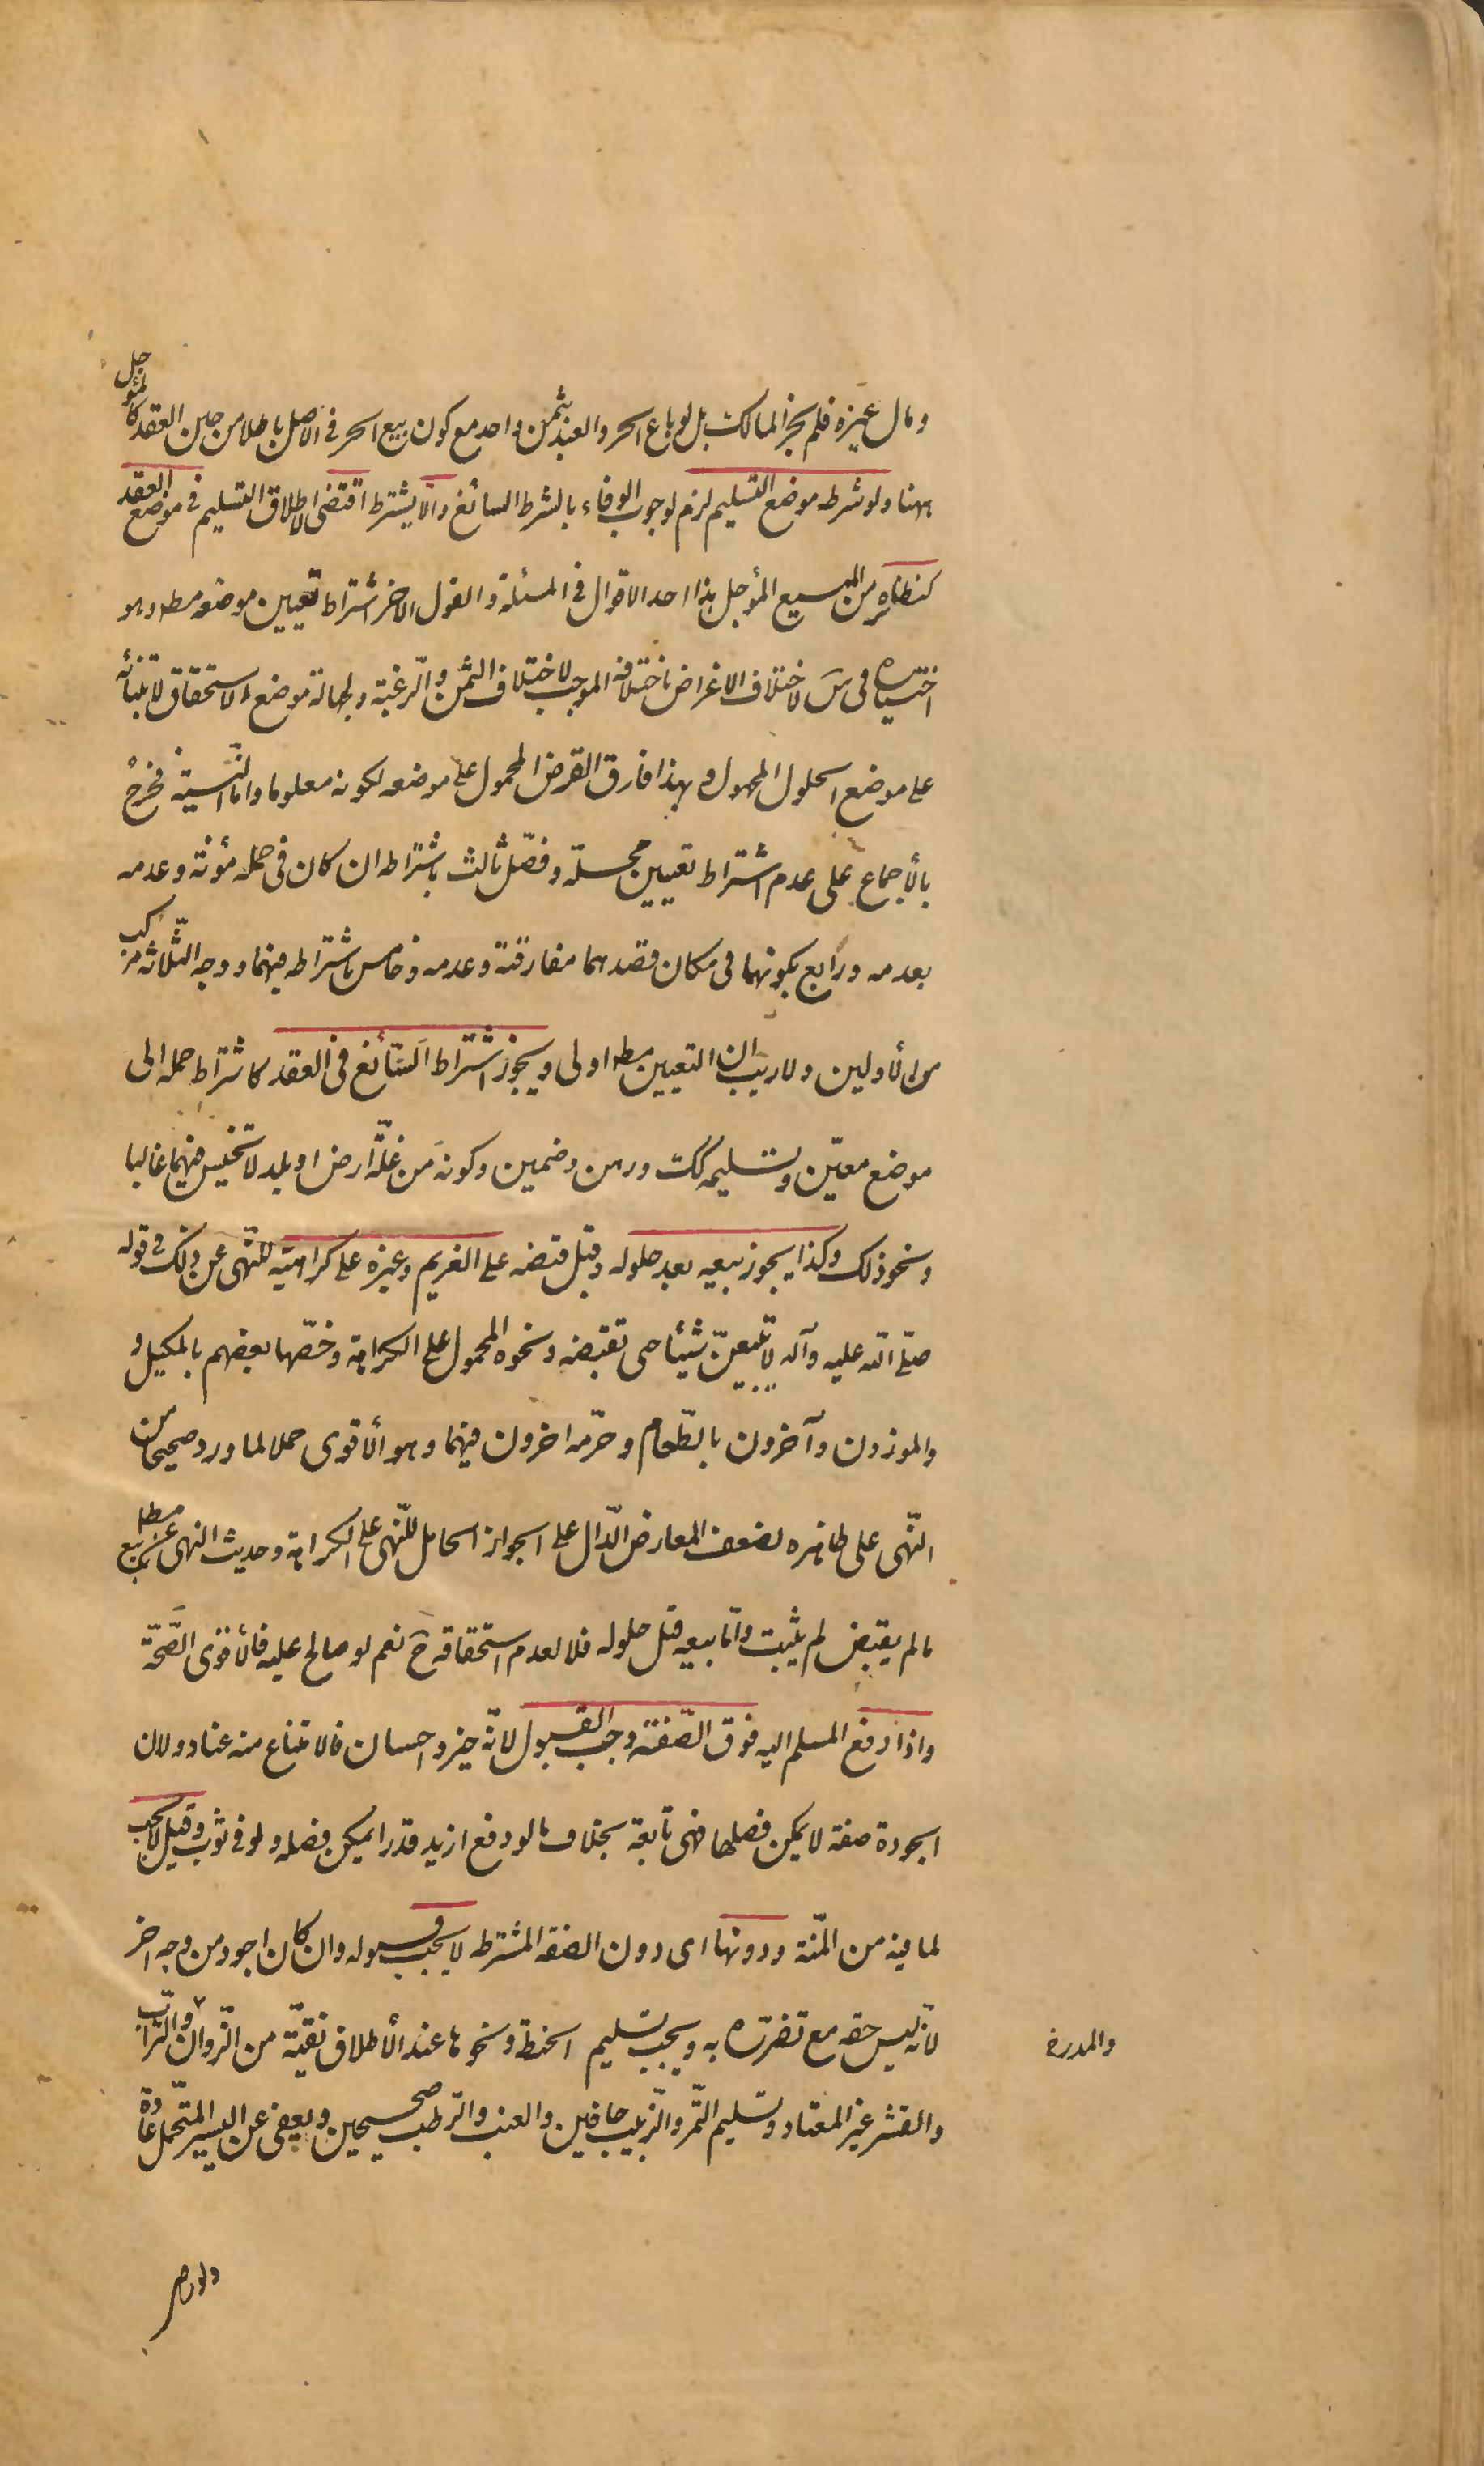 ومال غيره فلم يجز المالك بل لو باع الحر والعبد بثمن واحد مع كون بيع الحر في الاصل باطلا من حين العقد كالمؤجل
ههنا ولو شرطه موضع التسليم لزم لوجوب الوفاء بالشرط السائغ والّا يشترط اقتضى الاطلاق التسليم في موضع العقد
كنظائره من المبيع المؤجل هذا احد الاقوال في المسئلة والقول الاخر اشتراط تعيين موضعه مطه وهو
اختياره في س لاختلاف الاغراض باختلافه الموجب لاختلاف الثمن والرّغبة ولجهالة موضع الاستحقاق لابتنائه
على موضع الحلول المجهول وبهذا فارق القرض المحمول على موضعه لكونه معلوما واما النّسيّة فخرج
بالأجماع على عدم اشتراط تعيين محلّه وفصّل ثالث باشتراطه ان كان في حمله مؤنة وعدمه
بعدمه ورابع بكونهما في مكان قصدهما مفارقته وعدمه وخامس باشتراطه فيهما ووجه الثّلاثة مركب
من الأولين ولا ريب ان التعيين مطه اولى ويجوز اشتراط السّائغ في العقد كاشتراط حمله الى
موضع معيّن وتسليمه كك ورهن وضمين وكونه من غلّة ارض او بلد لا تخيس فيهما غالبا
ونحو ذلك وكذا يجوز بيعه بعد حلوله وقبل قبضه على الغريم وغيره على كراهيّة للنّهى عن ذلك في قوله
صلّى الله عليه وآله لا تبيعنّ شيئا حتى تقبضه ونحوه المحمول على الكراهة وخصّها بعضهم بالمكيل و
والموزون وآخرون بالطّعام وحرّمه اخرون فيهما وهو الأقوى حملا لما ورد صحيحا من
النّهى على ظاهره لضعف المعارض الدّال على الجواز الحامل للنّهى على الكراهة وحديث النهى عن بيع مطه
مالم يقبض لم يثبت وامّا بيعه قبل حلوله فلا لعدم استحقاقه ح نعم لو صالح عليه فالأقوى الصّحّة
واذا دفع المسلم اليه فوق الصّفة وجب القبول لانّه خير واحسان فالامتناع منه عناد ولان
الجودة صفة لا يمكن فصلها فهى تابعة بخلاف ما لو دفع ازيد قدرا يمكن فصله ولو في ثوب وقيل لا يجب
لما فيه من المنّة ودونها اى دون الصفة المشترطه لا يجب قبوله وان كان اجود من وجه اخر
لانّه ليس حقه مع تضرّره به ويجب تسليم الحنطة ونحوها عند الأطلاق نقيّة من الزّوان والتّراب
والقشر غير المعتاد وتسليم التّمر والزّبيب جافين والعنب والرّطب صحيحين ويعفى عن اليسير المتحمّل عادة
والمدر خ